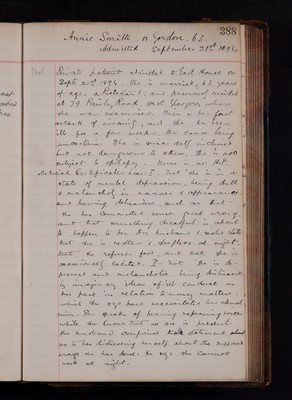 388
Annie Smith or Gordon, 63.
Admitted September 21st 1896
Private patient admitted to East House on
Sept 21st 1896. She is married, 63 years
of age, a Protestant, and previously resided
at 79 Road, West Glasgow, where
she was examined. This is her first
attack of insanity, and she has been
ill for a few weeks, the cause being
unknown. She is suicidally inclined
but not dangerous to others. She is not
subject to epilepsy. There is no H.P.
Medical Certificates. I. That she is in a
state of mental depression, being dull
& melancholy in manner & appearance
and having delusions, such as that
she has committed some great wrong
and that something dreadful is about
to happen to her. Her husband states
that she is restless & sleepless at night,
that she refuses food, and that she is
occasionally excited. II. That "she is de-
pressed and melancholic, being distressed
by imaginary ideas of ill conduct on
her part in relation to money matters
which she says have
. She speaks of hearing
while she knows that no one is present.
Her husband confirmed the statement
as to her distressing herself about the supposed
wrongs she has done. He says she cannot
rest at night.